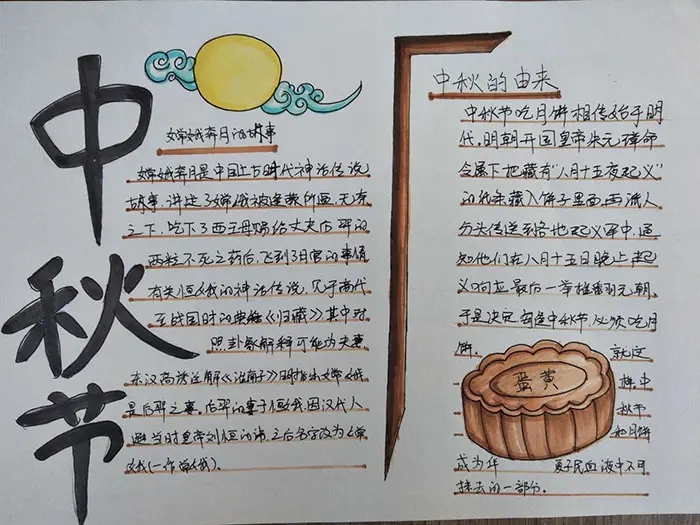 中秋节
嫦娥奔月的故事
嫦娥奔月是中国上古时代神话传说
故事,讲述了嫦娥被逄蒙所逼,无奈
之下,吃下了西王母赐给丈夫后羿的
两粒不死之药后,飞到了月宫的事情
有关嫦娥的神话传说,见于商代
至战国时的典籍《归藏》其中对
照卦象解释可能为夫妻
东汉高诱注解《淮南子》明指出嫦娥
是后羿之妻,后羿的妻子恒娥,因汉代人
避当时皇帝刘恒的讳,之后名字改为嫦
娥(一作常娥).
中秋的由来
中秋节吃月饼相传始于明
代,明朝开国皇帝朱元璋命
令属下把藏有"八月十五夜起义"
的纸条藏入饼子里面再派人
分头传送到各地起义军中,通
知他们在八月十五日晚上起
义响应最后一举推翻元朝,
于是决定每逢中秋节,必须吃月
饼.
就这
样中
秋节
和月饼
成为华夏子民血液中不可
抹去的一部分.
蛋黄